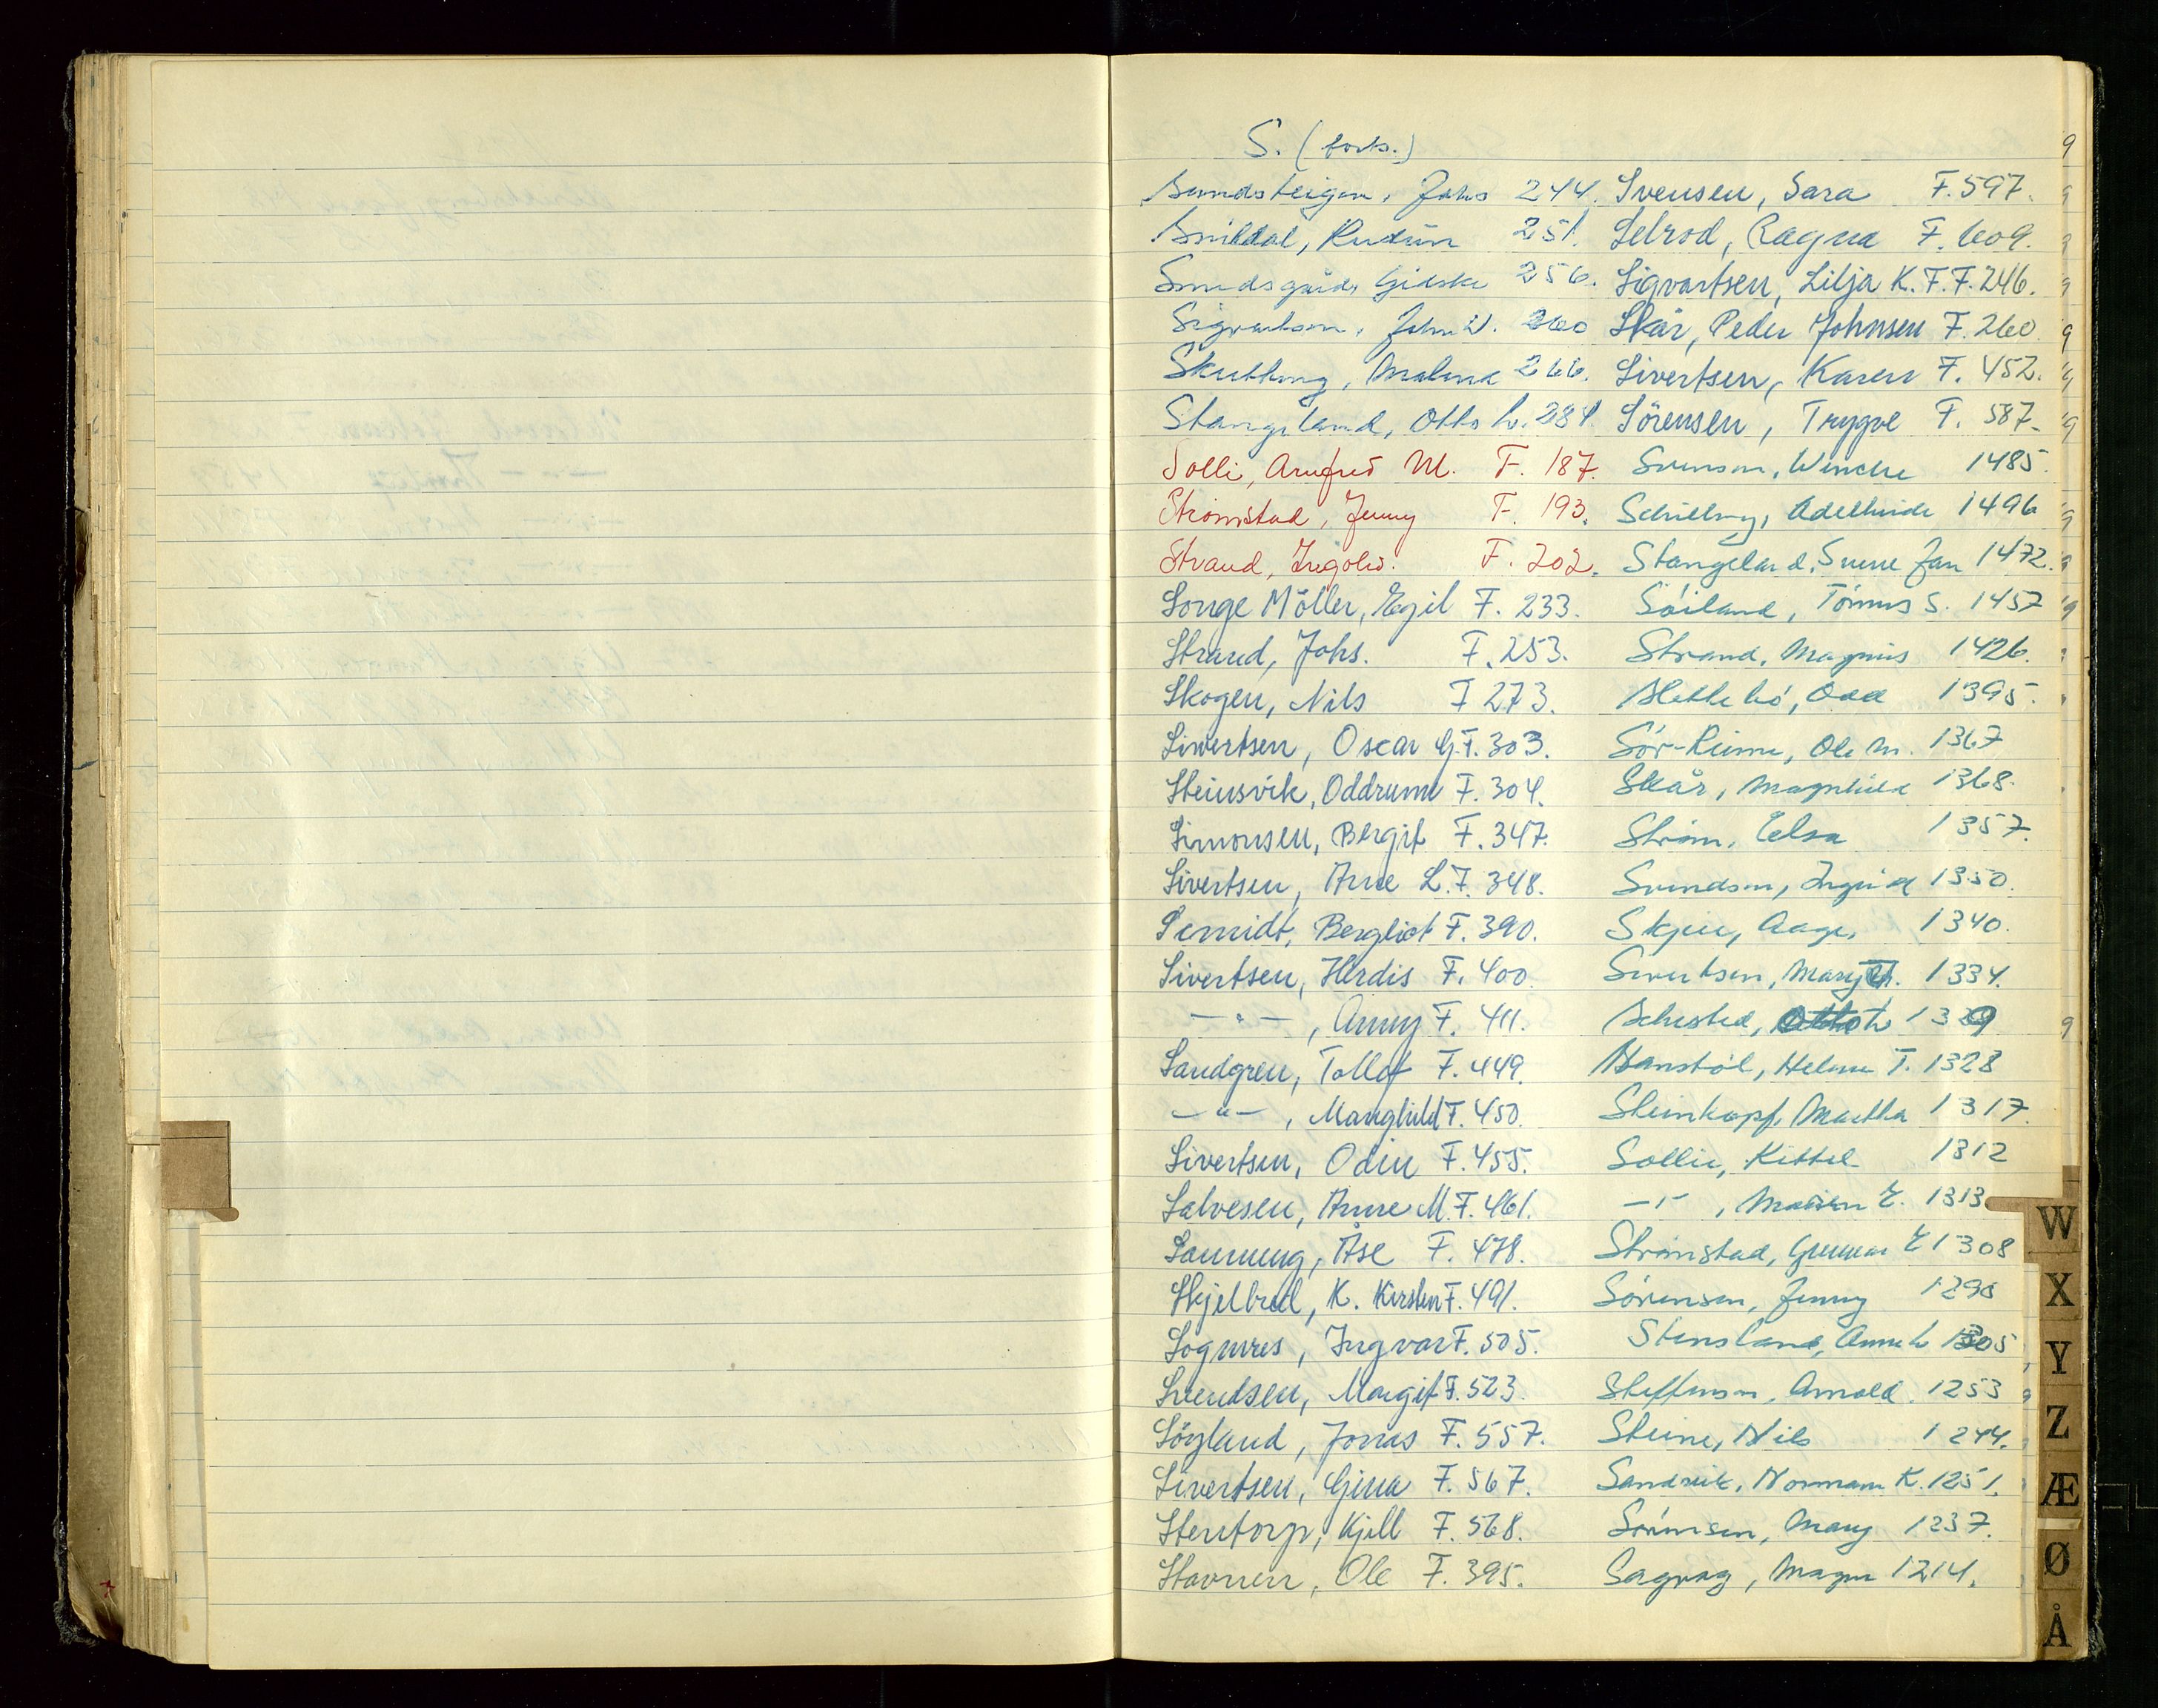 S. (forts.)
Sundsteigen, Johs 244.
Smildal, Rudun 251.
Sundsgård, Gidske 256.
Sigvartsen, John W. 260
Skutberg, Malena 266.
Stangeland, Otto L. 284.
Solli, Arnfred M. F. 187.
Strømstad, Jenny F. 193.
Strand, Ingolv. F. 202.
Songe Möller, Egil F. 233.
Strand, Johs. F. 253.
Skogen, Nils F 273.
Sivertsen, Oscar G. F. 303.
Steinsvik, Oddrunn F. 304.
Simonsen, Bergit F. 347.
Sivertsen, Arne L. F. 348.
Scmidt, Bergliot F. 390.
Sivertsen, Herdis F. 400.
—"— , Anny F. 411.
Sandgren, Tollof F. 449.
—"— , Manghild F. 450.
Sivertsen, Odin F. 455.
Salvesen, Anne M. F. 461.
Sanning, Åse F. 478.
Skjelbred, K. Kirsten F. 491.
Sognnes, Ingvar F. 505.
Svendsen, Margit F. 523.
Söyland, Jonas F. 557.
Sivertsen, Gina F. 567.
Stentorp, Kjell F. 568.
Stavnen, Ole F. 395.
Svensen, Sara F. 597.
Selrod, Ragna F. 609.
Sigvartsen, Lilja K. F. F. 246.
Skår, Peder Johnsen F. 260
Sivertsen, Karen F. 452.
Sörensen, Trygve F. 587.
Svenson, Wenche 1485.
Schilling, Adelheide 1496
Stangeland, Sverre Jan 1472.
Söiland, Tönnes S. 1457
Strand, Magnus 1426.
Slettebö, Odd 1395.
Sör-Reime, Ole M. 1367
Skår, Magnhild 1368.
Ström, Elsa 1357.
Svendsen, Ingrid 1350.
Skjeie, Aage, 1340.
Sivertsen, Mary 1334.
Sehested, Otto 1329
Hanstöl, Helene T. 1328
Steinkopf, Martha 1317.
Sollie, Kittel 1312
—"— , E. 1313
Strömstad, Gunnar E 1308
Sörensen, Jenny 1290
Stensland, Anne L 1305
Steffensen, Arnold. 1253
Steine, Nils 1244.
Sandvik, Norman K. 1251.
Sörensen, Mary 1237.
Sagvag, Magne 1214.
W
X
Y
Z
Æ
Ø
Å